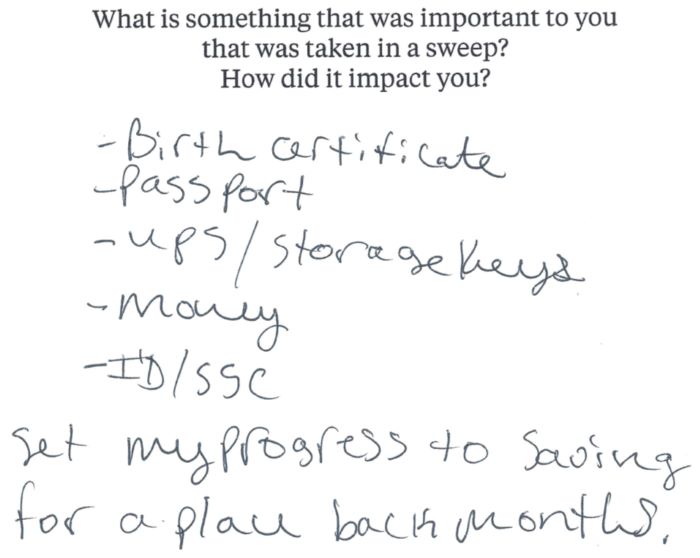 What is something that was important to you
that was taken in a sweep?
How did it impact you?
- Birth certificate
- Passport
- UPS/storage keys
- Money
- ID/SSC
Set my progress to saving
for a place back months.